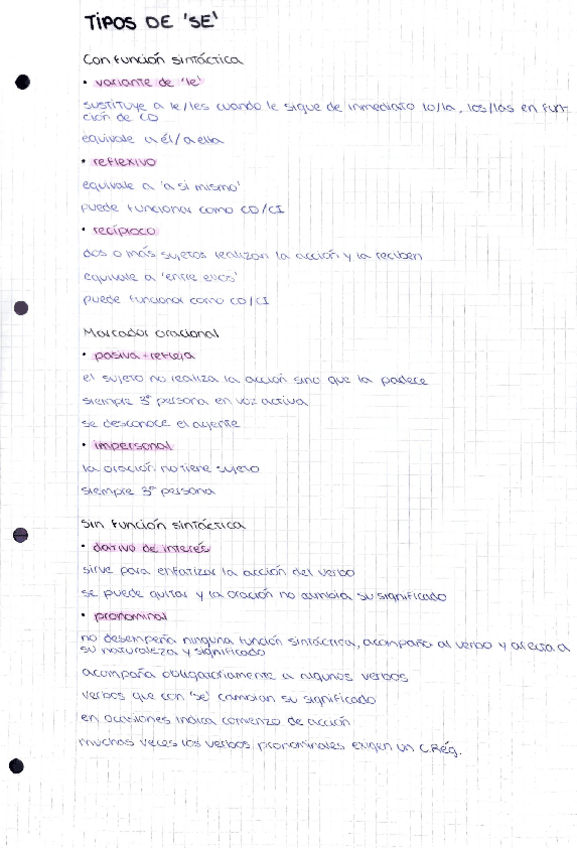 TIPOS DE 'SE'
Con función sintáctica
• variante de 'le'
sustituye a le/les cuando le sigue de inmediato lo/la, los/las en fun-
ción de CD
equivale a él/a ella
• reflexivo
equivale a 'a sí mismo'
puede funcionar como CD/CI
• recíproco
dos o más sujetos realizan la acción y la reciben
equivale a 'entre ellos'
puede funcionar como CD/CI
Marcador oracional
• pasiva-refleja
el sujeto no realiza la acción sino que la padece
siempre 3ª persona en voz activa
se desconoce el agente
• impersonal
la oración no tiene sujeto
siempre 3ª persona
Sin función sintáctica
• dativo de interés
sirve para enfatizar la acción del verbo
se puede quitar y la oración no cambia su significado
• pronominal
no desempeña ninguna función sintáctica, acompaña al verbo y afecta a
su naturaleza y significado
acompaña obligatoriamente a algunos verbos
verbos que con 'se' cambian su significado
en ocasiones indica comienzo de acción
muchas veces los verbos pronominales exigen un C.Rég.